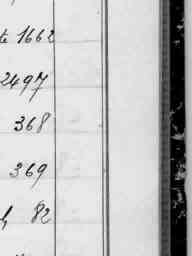 1662
2497
368
369
82